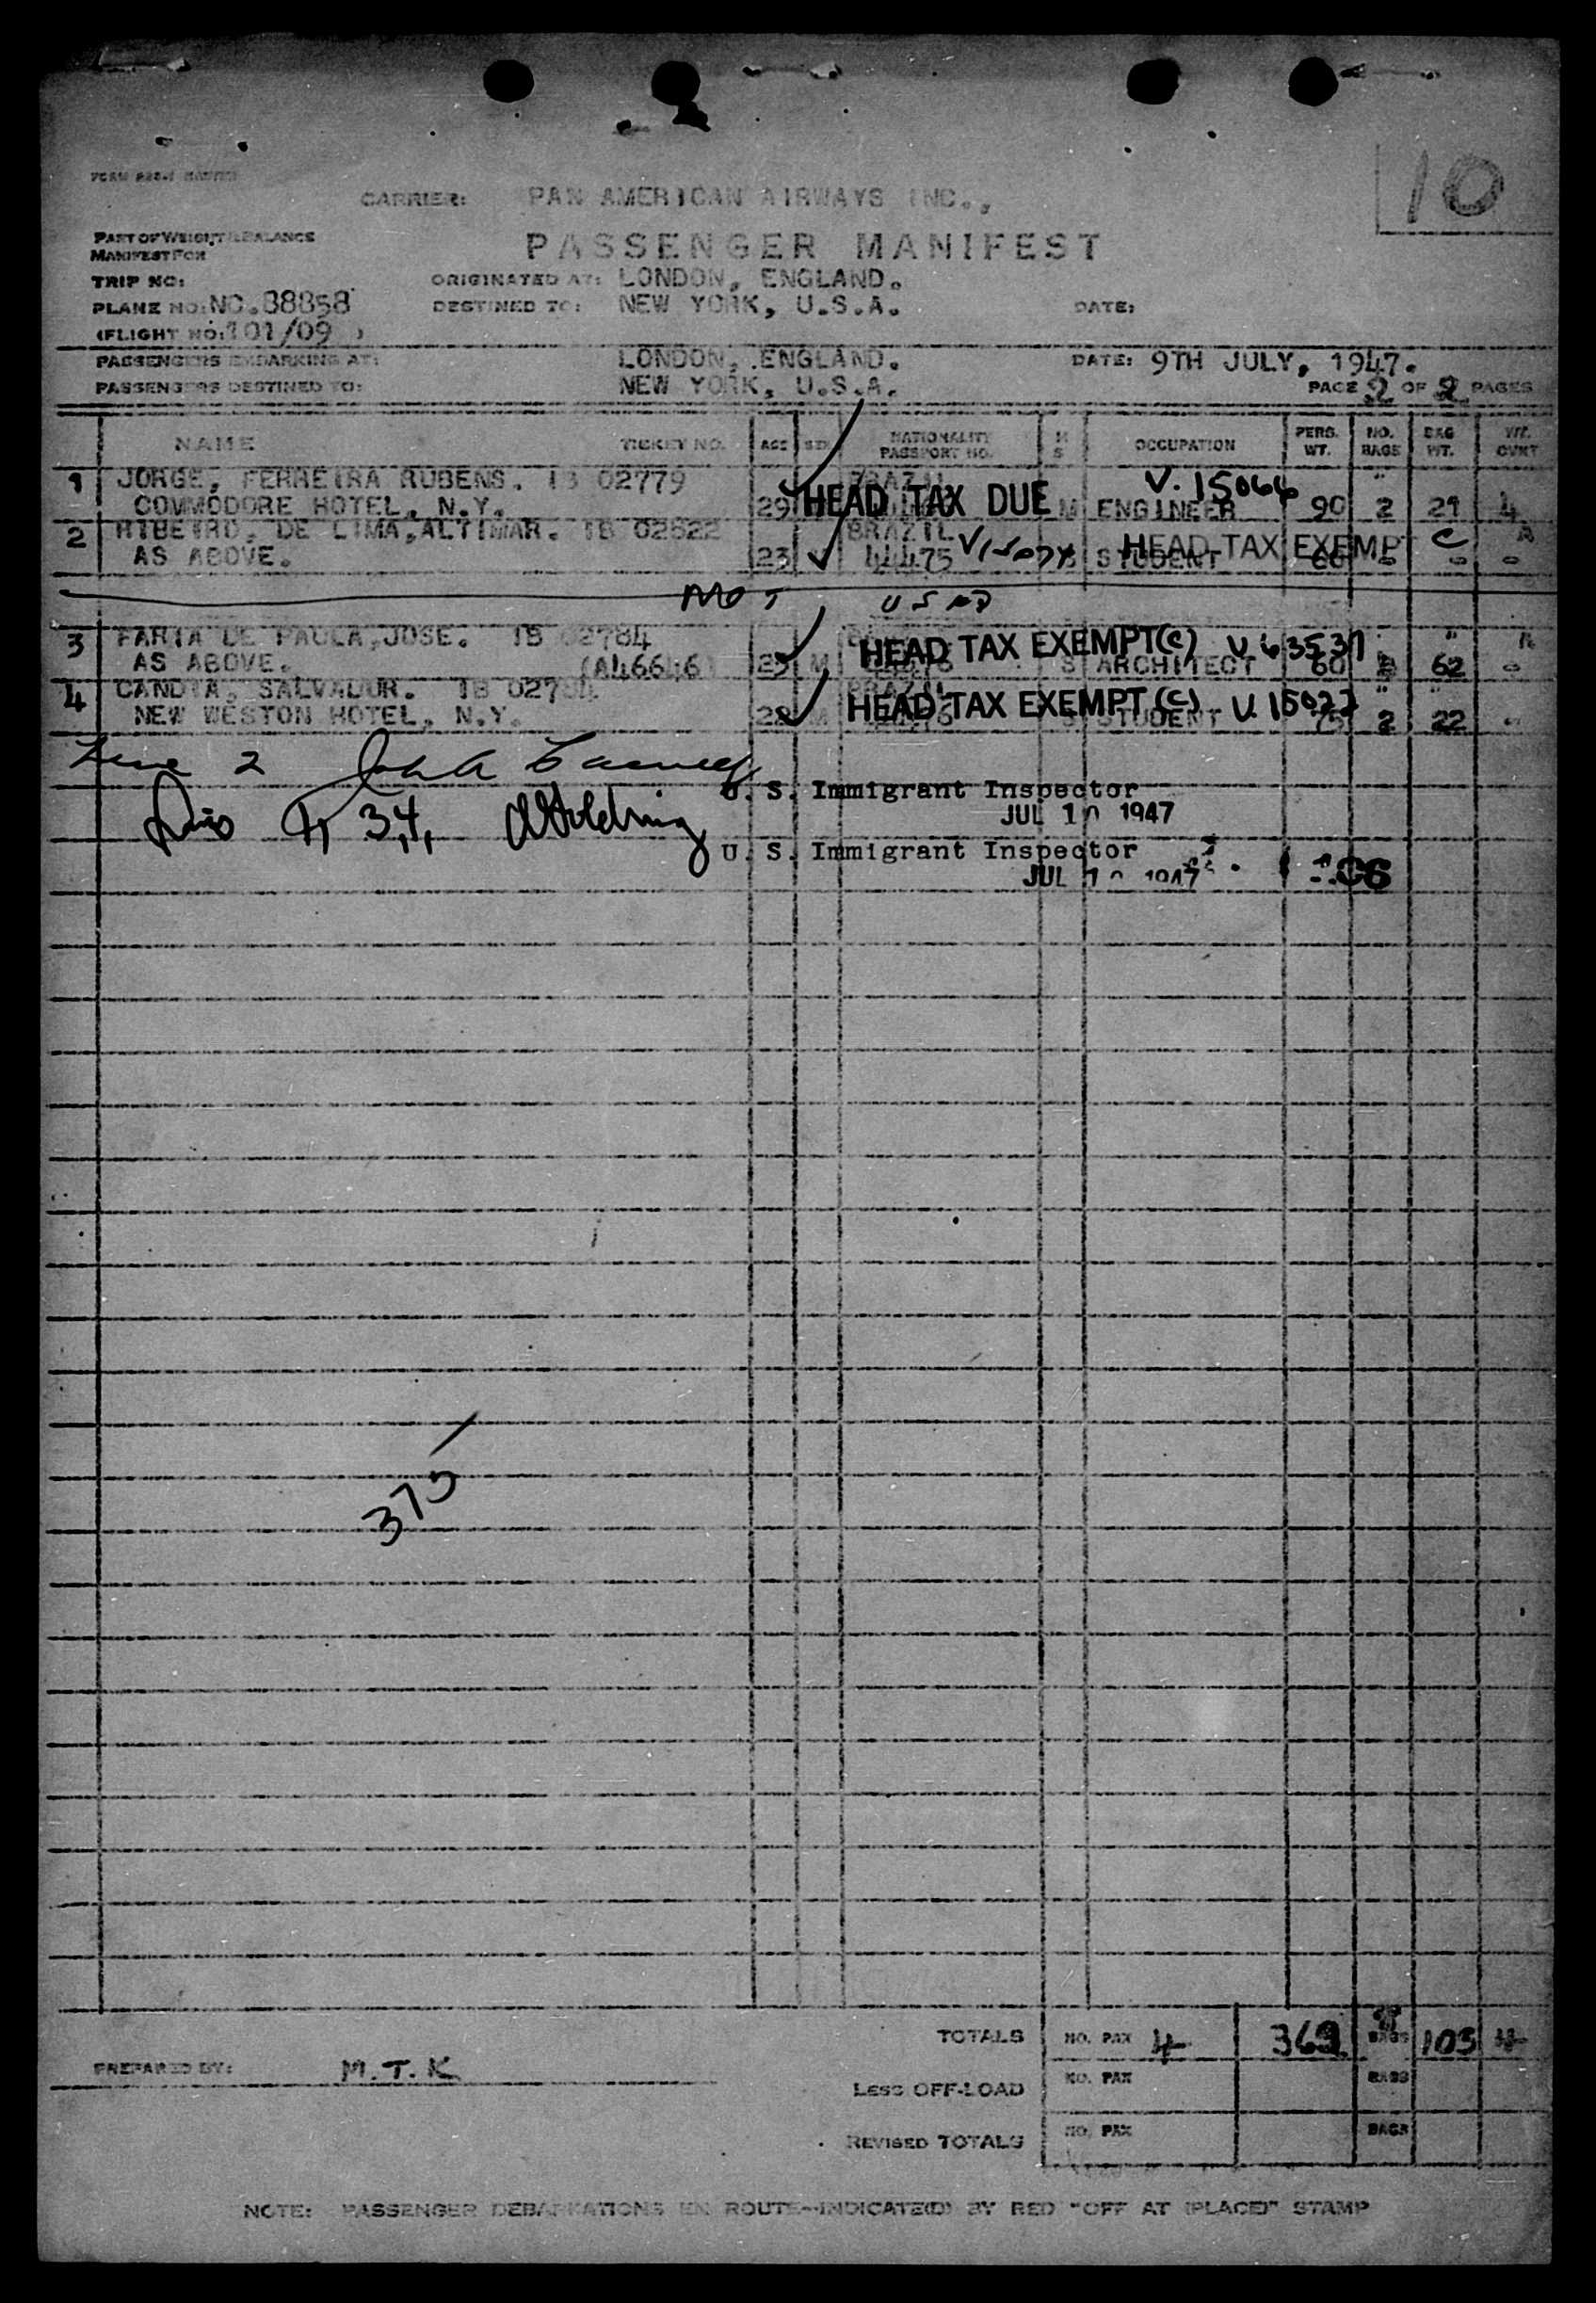 10
CARRIER: PAN AMERICAN AIRWAYS INC.,
PART OF WEIGHT & BALANCE
MANIFEST FOR
PASSENGER MANIFEST
TRIP NO:
ORIGINATED AT: LONDON, ENGLAND.
PLANE NO: NC.88858
DESTINED TO: NEW YORK, U.S.A.
DATE:
(FLIGHT NO: 101/09 )
PASSENGERS EMBARKING AT: LONDON, ENGLAND. DATE: 9TH JULY, 1947.
PASSENGERS DESTINED TO: NEW YORK, U.S.A. PAGE 2 OF 2 PAGES
NAME TICKET NO. AGE SEX NATIONALITY PASSPORT NO. M S OCCUPATION PERS. WT. NO. BAGS BAG WT. WT. OVWT
1 JORGE, FERREIRA RUBENS. IB 02779 BRAZIL V. 15066
COMMODORE HOTEL, N.Y. 29 HEAD TAX DUE M ENGINEER 90 2 21 4
2 RIBEIRO, DE LIMA, ALTIMAR. IB 02622 BRAZIL HEAD TAX EXEMPT C
AS ABOVE. 23 44475 S STUDENT
NOT USED
3 FARIA DE PAULA, JOSE. IB 02784 HEAD TAX EXEMPT (C) V 63537
AS ABOVE. (A46646) 25 M S ARCHITECT 60 62
4 CANDIA, SALVADOR. IB BRAZIL HEAD TAX EXEMPT (C) V 15077
NEW WESTON HOTEL, N.Y. 28 M S STUDENT 75 2 22
Line 2
U. S. Immigrant Inspector
JUL 10 1947
Lines 1, 3, 4,
U. S. Immigrant Inspector
JUL 10 1947
375
TOTALS NO. PAX 4 369 BAGS 105 4
PREPARED BY: M.T.K
LESS OFF-LOAD NO. PAX BAGS
REVISED TOTALS NO. PAX BAGS
NOTE: PASSENGER DEBARKATIONS EN ROUTE-INDICATE(D) BY RED "OFF AT (PLACE)" STAMP